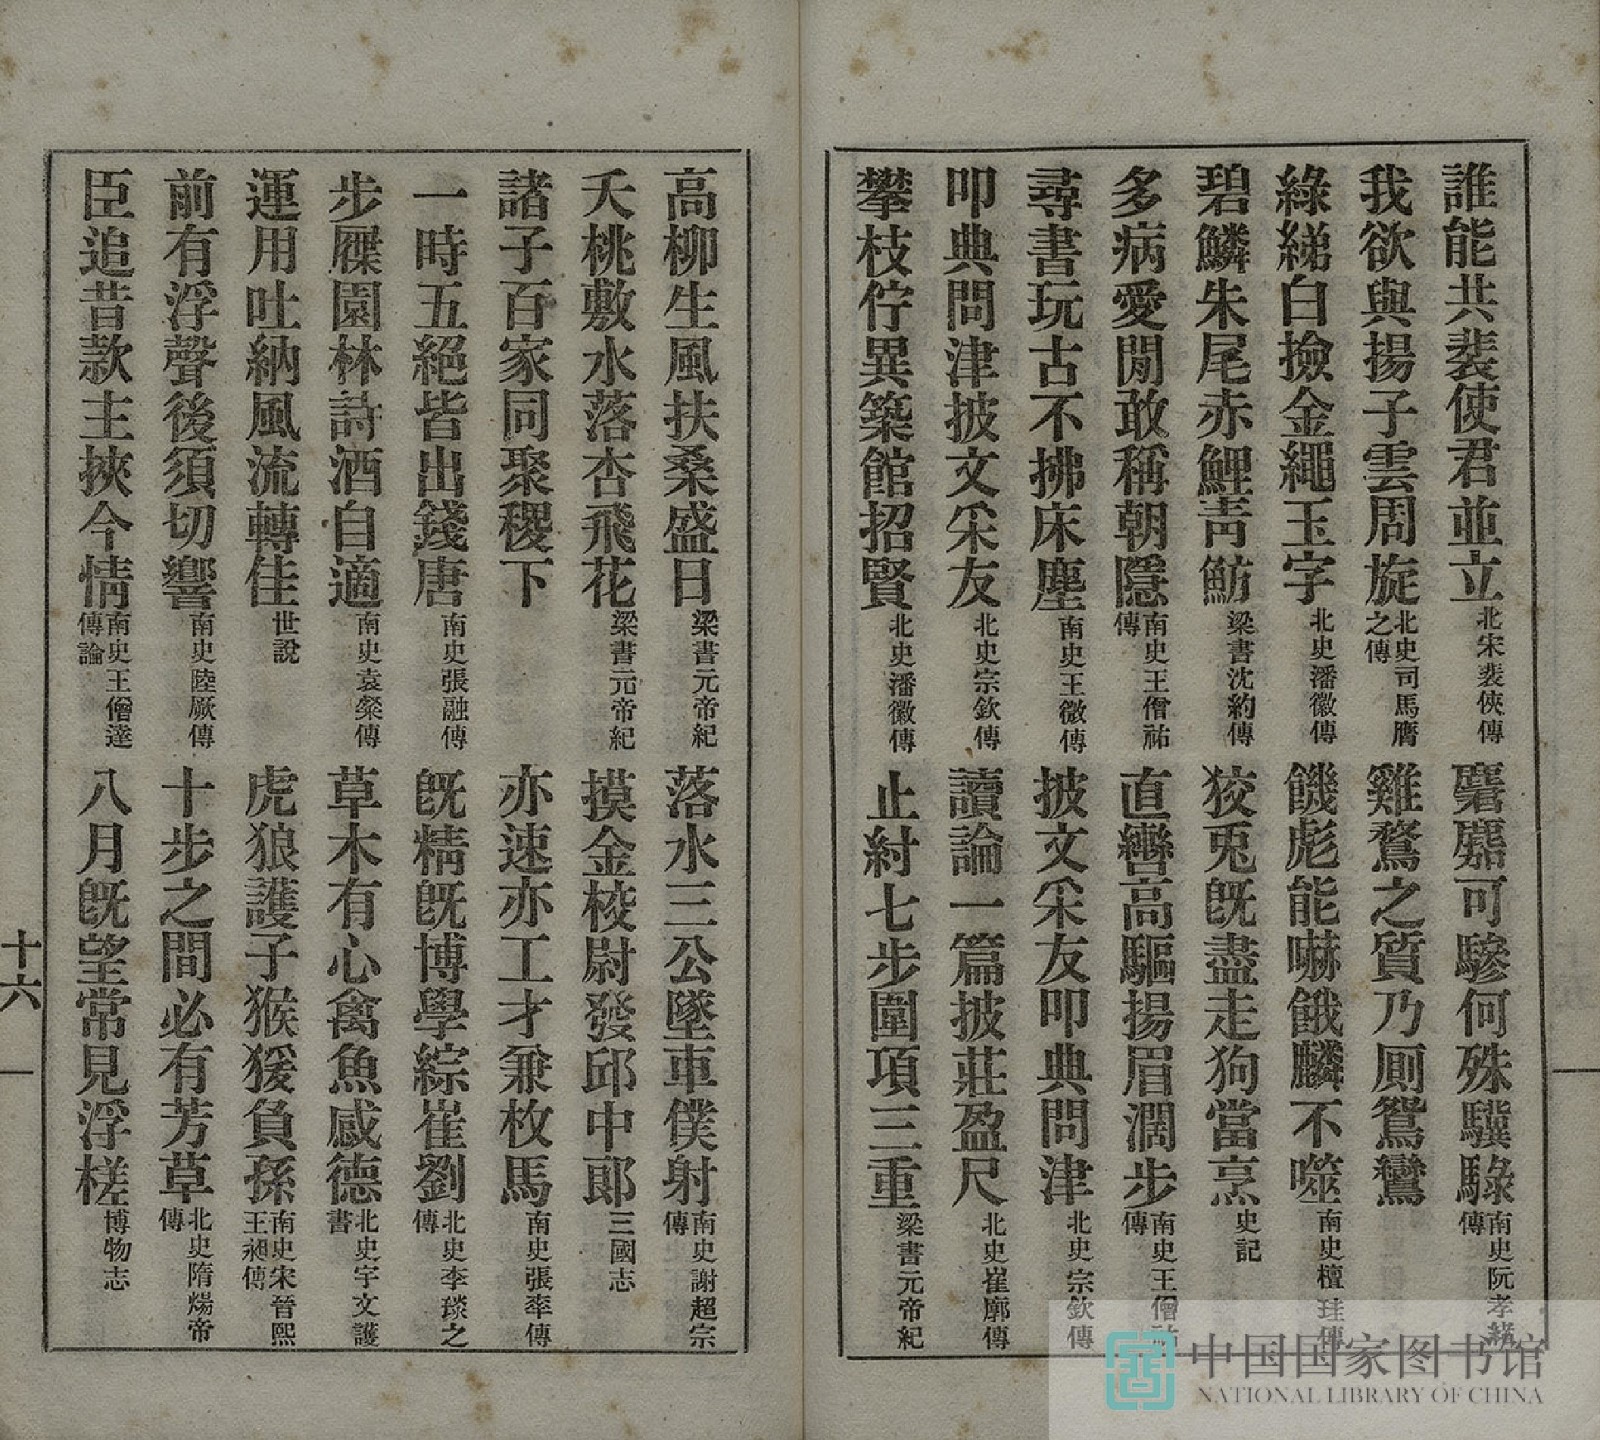 誰能共裴使君並立 北宋裴俠傳 麏麚可驂何殊驥騄 南史阮孝緒傳
我欲與揚子雲周旋 北史司馬膺之傳 雞鶩之質乃厠鴛鸞
綠綈白撿金繩玉字 北史潘徽傳 饑彪能嚇餓麟不噬 南史檀珪傳
碧鱗朱尾赤鯉青魴 梁書沈約傳 狡兎既盡走狗當烹 史記
多病愛閒敢稱朝隱 南史王僧祐傳 直轡高驅揚眉濶步 南史王僧祐傳
尋書玩古不拂床塵 南史王微傳 披文采友叩典問津 北史宗欽傳
叩典問津披文采友 北史宗欽傳 讀論一篇披莊盈尺 北史崔廓傳
攀枝佇異築館招賢 北史潘徽傳 止紂七步圍項三重 梁書元帝紀
高柳生風扶桑盛日 梁書元帝紀 落水三公墜車僕射 南史謝超宗傳
夭桃敷水落杏飛花 梁書元帝紀 摸金校尉發邱中郎 三國志
諸子百家同聚稷下 亦速亦工才兼枚馬 南史張率傳
一時五絕皆出錢唐 南史張融傳 既精既博學綜崔劉 北史李琰之傳
步屧園林詩酒自適 南史袁粲傳 草木有心禽魚感德 北史宇文護書
運用吐納風流轉佳 世說 虎狼護子猴猨負孫 南史宋晉熙王昶傳
前有浮聲後須切響 南史陸厥傳 十步之間必有芳草 北史隋煬帝傳
臣追昔款主挾今情 南史王僧達傳論 八月既望常見浮槎 博物志
十六
中国国家图书馆
NATIONAL LIBRARY OF CHINA